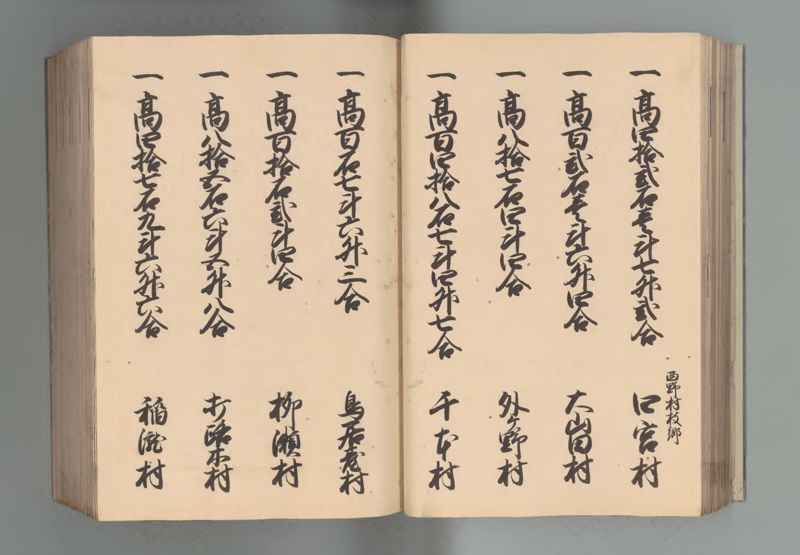 一高四拾弐石壱斗七升弐合
西野村枝郷
口宮村
一高百弐石壱斗六升四合
大山田村
一高八拾七石四斗四合
外ヶ野村
一高百四拾八石七斗四升七合
千本村
一高百石七斗六升三合
鳥居老村
一高百拾石弐斗四合
柳瀬村
一高八拾五石六斗五升八合
村
一高四拾七石九斗六升六合
稲瀧村